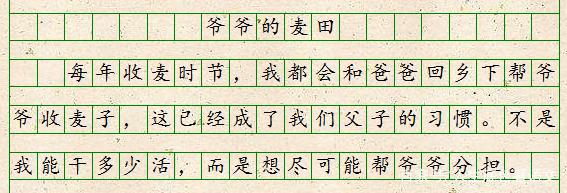 爷爷的麦田
每年收麦时节，我都会和爸爸回乡下帮爷
爷收麦子，这已经成了我们父子的习惯。不是
我能干多少活，而是想尽可能帮爷爷分担。